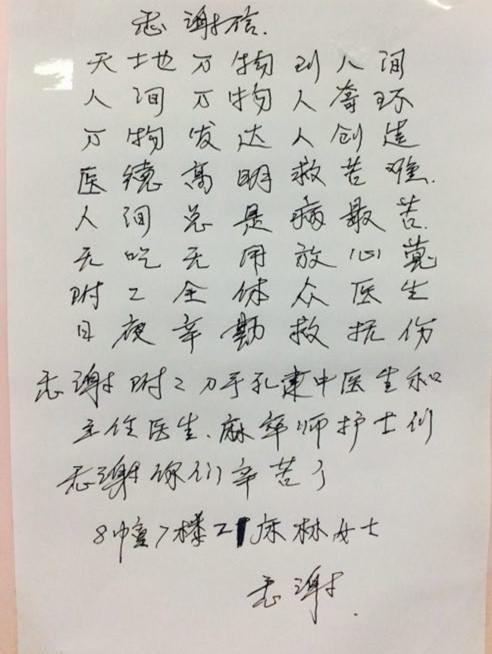 感谢信.
天地万物到人间
人间万物人夺环
万物发达人创造
医德高明救苦难.
人间总是病最苦.
无吃无用放心宽
附二全体众医生
日夜辛勤救扶伤
感谢附二刀手孔建中医生和
主任医生.麻醉师护士们
感谢你们辛苦了
8幢7楼21床林女士
感谢.